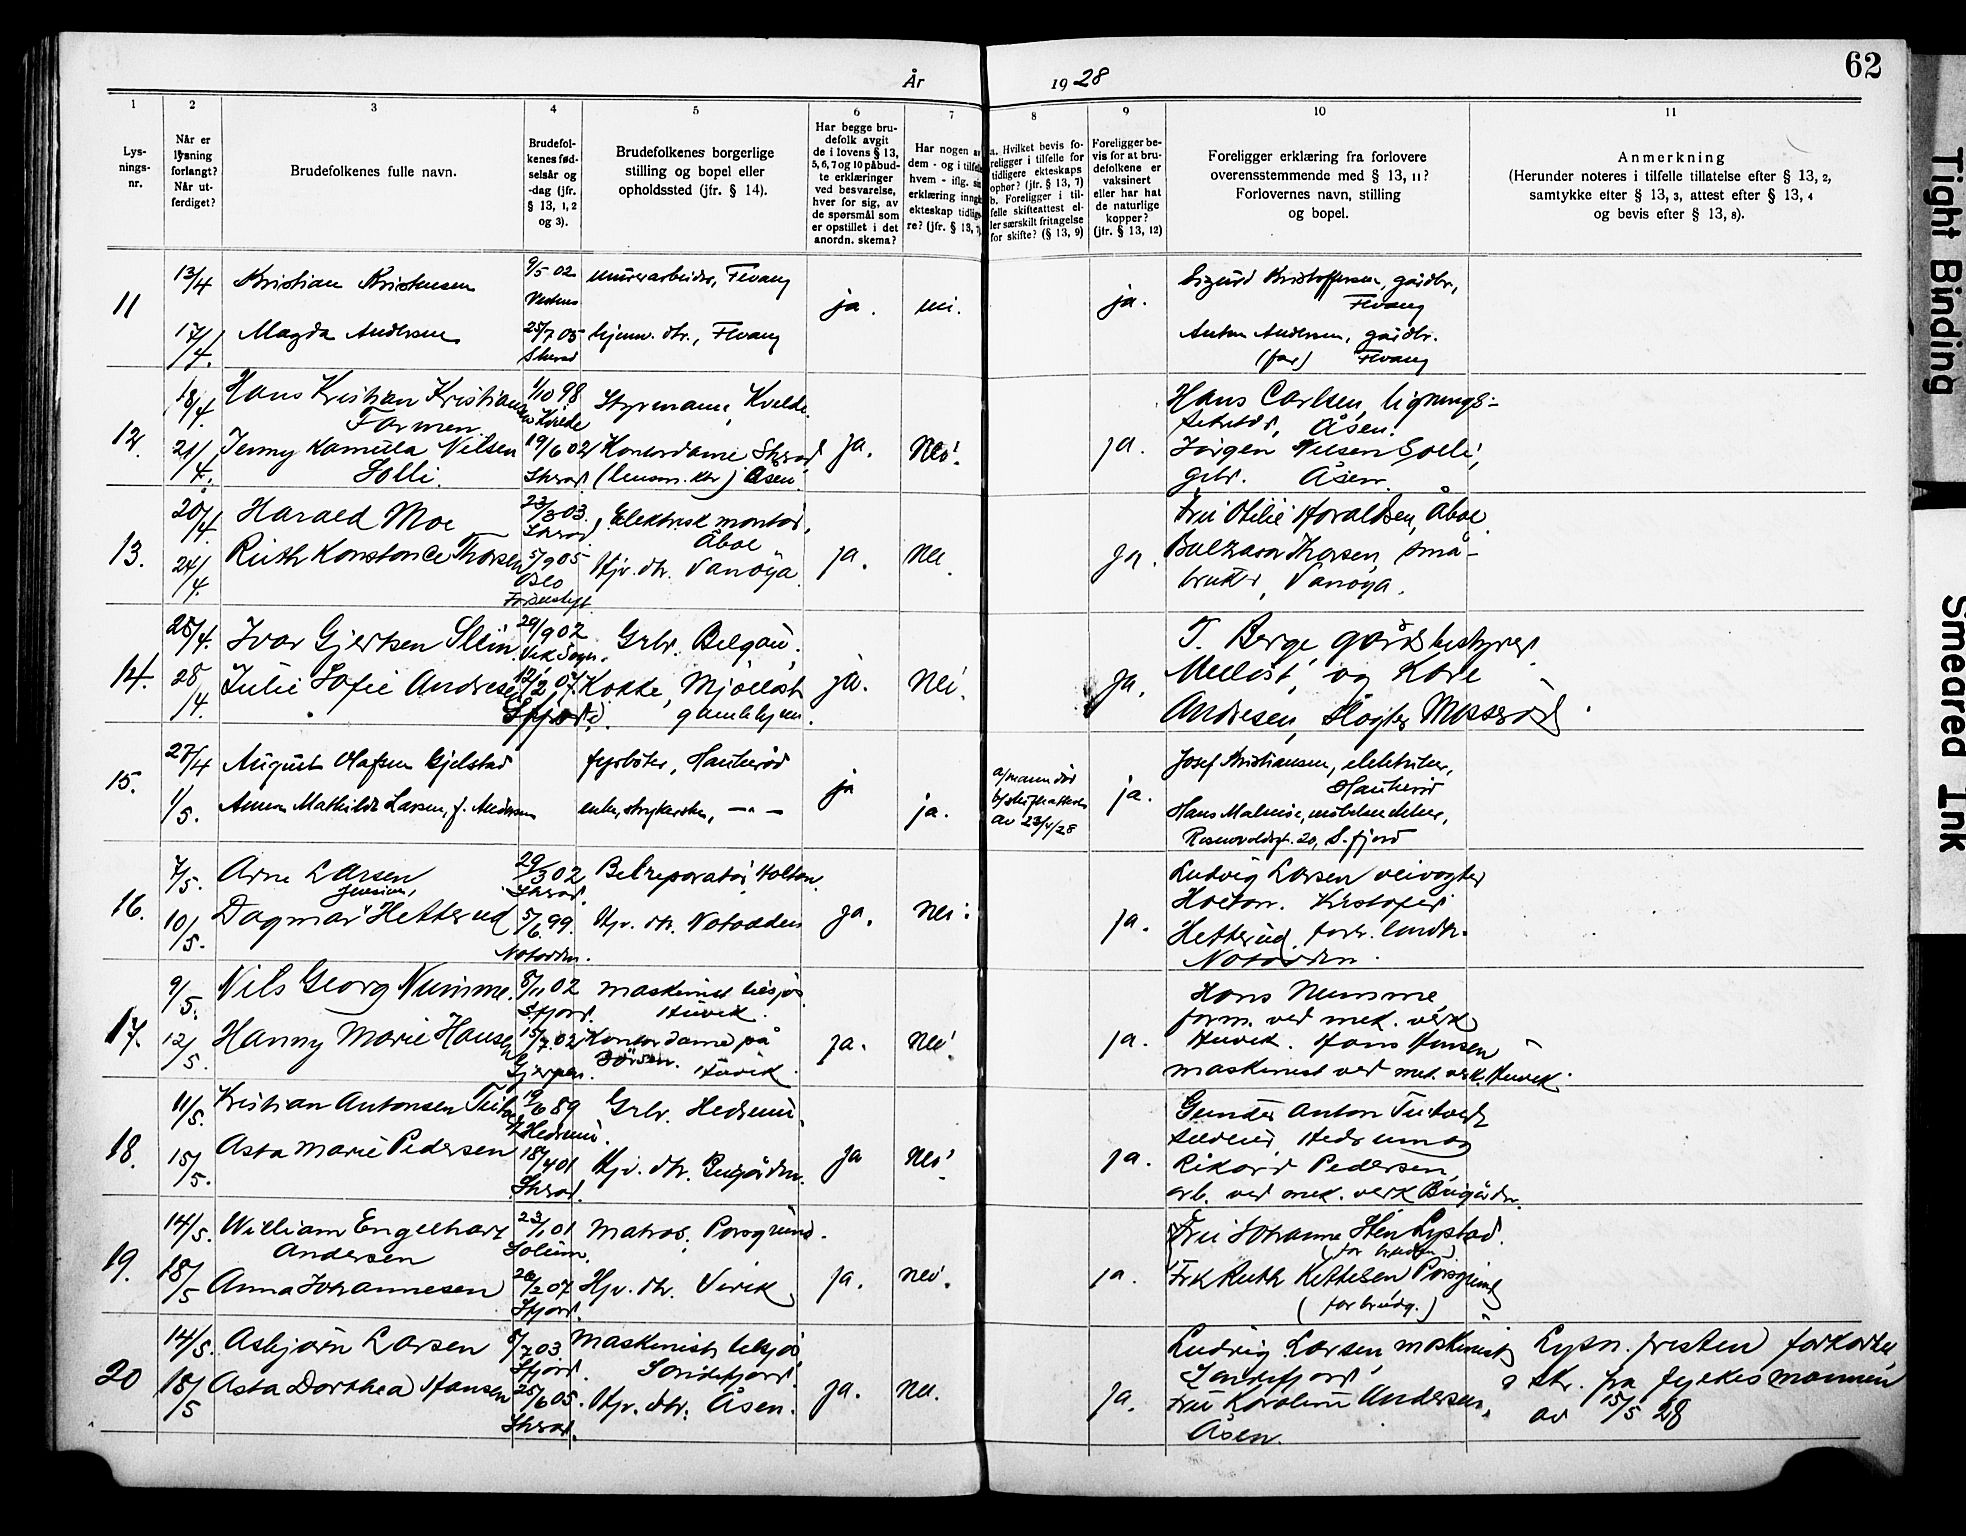 År 1928
62
1 2 3 4 5 6 7 8 9 10 11
Lys-
nings-
nr.
Når er
lysning
forlangt?
Når ut-
ferdiget?
Brudefolkenes fulle navn.
Brudefol-
kenes fød-
selsår og
-dag (jfr.
§ 13, 1, 2
og 3).
Brudefolkenes borgerlige
stilling og bopel eller
opholdssted (jfr. § 14).
Har begge bru-
defolk avgit
de i lovens § 13,
5, 6, 7 og 10 påbud-
te erklæringer
ved besvarelse,
hver for sig, av
de spørsmål som
er opstillet i det
anordn. skema?
Har nogen a
dem - og i tilfelle
hvem - iflg. sin
erklæring inng
ekteskap tidlig
re? (jfr. § 13, 7)
a. Hvilket bevis fo-
religger i tilfelle for
tidligere ekteskaps
ophør? (jfr. § 13, 7)
b. Foreligger i til-
felle skifteattest el-
ler særskilt fritagelse
for skifte? (§ 13, 9)
Foreligger be-
vis for at bru-
defolkene er
vaksinert
eller har hat
de naturlige
kopper?
(jfr. § 13, 12)
Foreligger erklæring fra forlovere
overensstemmende med § 13, 11?
Forlovernes navn, stilling
og bopel.
Anmerkning
(Herunder noteres i tilfelle tillatelse efter § 13, 2,
samtykke efter § 13, 3, attest efter § 13, 4
og bevis efter § 13, 8).
11
13/4 Kristian Kristensen 9/5 02 Flvang
17/4. Magda Andersen 25/7 05 hjemv. dtr., Flvang
Skrod
ja. nei. ja.
Sigurd Kristoffersen, gårdbr.,
Flvang
Anton Andersen, gårdbr.
(far) Flvang
12.
18/4. Hans Kristian Kristiansen 1/10 98 Styrmann, Kvelde.
Farmen Kvelde
21/4. Jenny Kamilla Nilsen 19/6 02 Kontordame Skrod
Solli. Skrod. Åsen.
ja. Nei. ja.
Hans Carlsen, lignings-
Åsen.
Jørgen Nilsen Solli,
gbr. Åsen.
13.
20/4. Harald Moe 23/3 03. Elektrisk montør,
Skrod. Åbol
24/4. Ruth Konstance Thorsen 5/9 05 Hjv. dtr. Vanøya.
Oslo
ja. Nei. ja.
Fru Otilie Haraldsen, Åbol.
Balzar Thorsen, små-
bruker, Vanøya.
14.
25/4. Ivar Gjertsen Slein 29/9 02 Grbr.
Vik Sogn.
28/4. Julie Sofie Andresen 12/2 07. Kokke,
Sfjord. gamlehjem.
ja. Nei. ja.
T. Berge gårdsbestyrer
og Kåre
Andresen, slagter
15.
27/4 August Olafsen Gjelstad fyrbøter, Haukerød
1/5. Anna Mathilde Larsen, f. Andersen enke, strykerske, — " —
ja ja.
a/mann død
b/skifteattest
av 23/4/28
ja.
Josef Kristiansen, elektriker,
Haukerød
Hans Malmøe, møbelsnekker,
20, S. fjord
16.
7/5. Arne Larsen 29/3 02 Holtan.
Skrod.
Jensine,
10/5. Dagmar Hetterud 5/6 99. Hjv. dtr. Notodden
Notodden.
ja. Nei. ja.
Ludvig Larsen veivogter
Holtan. Kristofer
Hetterud, forh. landh.
Notodden.
17.
9/5. Nils Georg Numme. 8/11 02 maskinist tilsjøs
S.fjord. Huvik.
12/5. Hanny Marie Hansen 15/7. 02 Kontordame på
Gjerpen. Børsen. Huvik
ja. Nei. ja.
Hans Numme,
form. ved mek. verk
Huvik. Hans Hansen
maskinist ved mek. verk. Huvik.
18.
11/5. Kristian Antonsen 19/6 89 Grbr. Hedrum.
Hedrum.
15/5. Asta Marie Pedersen 18/4 01 Hjv. dtr.
Skrod.
ja Nei. ja.
Gunder Anton
Hedrum og
Rikard Pedersen,
arb. ved mek. verk
19.
14/5. William Engelhart 23/1 01 Matros, Porsgrund.
Andersen Solum.
18/5 Anna Johannesen 20/2 07 Hjv. dtr. Virik
Sfjord.
ja. nei. ja.
Fru Johanne Lystad.
(for bruden)
Frk Ruth Kittelsen Porsgrund
(for brudg.)
20
14/5. Asbjørn Larsen 5/7 03 Maskinist tilsjøs
Sfjord. Sandefjord.
18/5 Asta Dorthea Hansen 25/6 05. Hjv. dtr. Åsen.
Skrod.
ja. nei. ja.
Ludvig Larsen, maskinist
Sandefjord
Fru Karoline Andersen,
Åsen.
Lysn. fristen forkortet
skr. fra fylkesmannen
av 15/5 28
Tight Binding
Smeared Ink